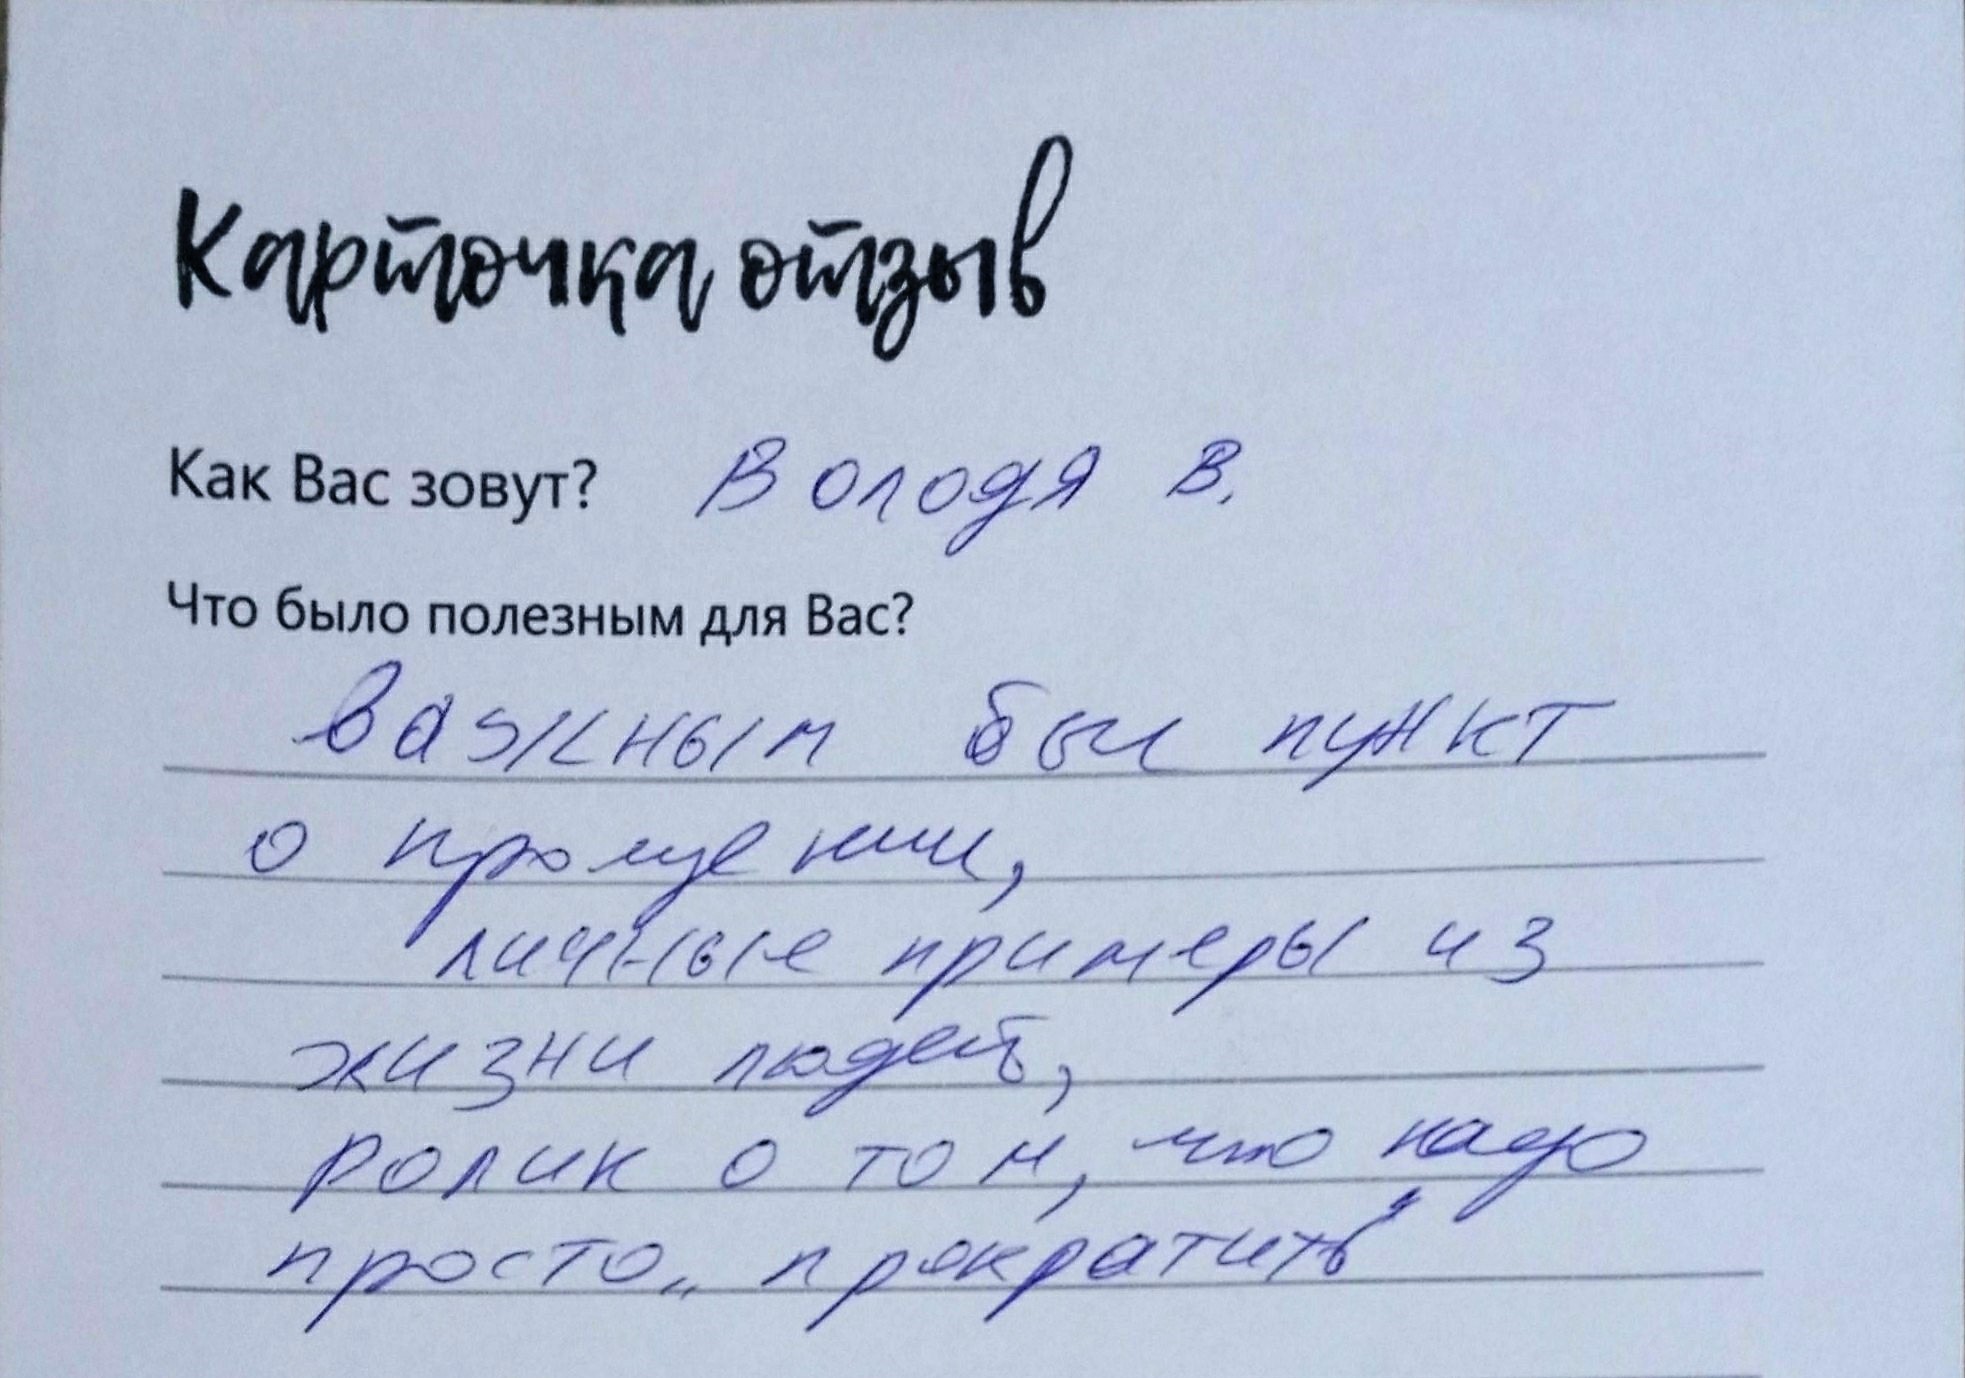 Карточка отзыв
Как Вас зовут? Володя В.
Что было полезным для Вас?
Важным был пункт
о прощении,
личные примеры из
жизни людей,
ролик о том, что надо
просто „прекратить"